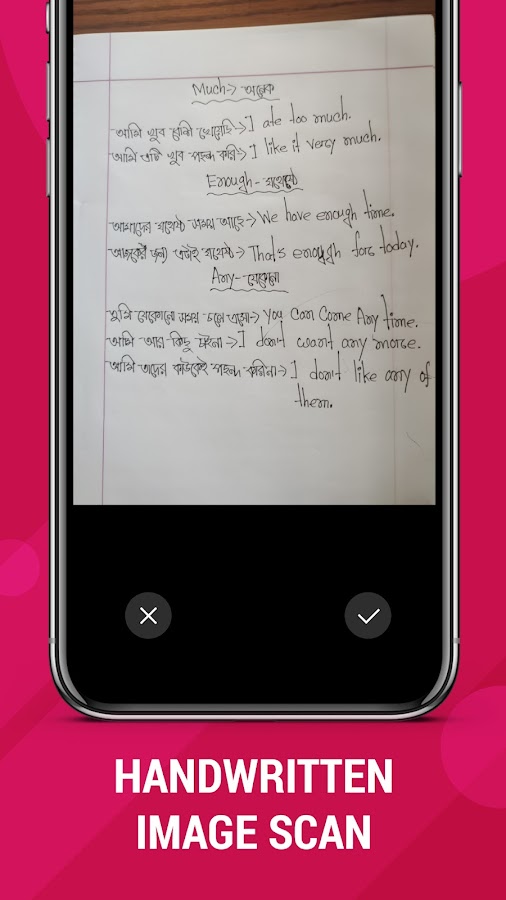 Much→ অনেক
আমি খুব বেশি খেয়েছি→ I ate too much.
আমি এটি খুব পছন্দ করি→ I like it very much.
Enough- যথেষ্ট
আমাদের যথেষ্ট সময় আছে→ We have enough time.
আজকের জন্য এটাই যথেষ্ট→ That's enough for today.
Any- যেকোনো
তুমি যেকোনো সময় চলে এসো→ You Can Come Any time.
আমি আর কিছু চাইনা→ I don't want any more.
আমি তাদের কাউকেই পছন্দ করিনা→ I don't like any of
them.
HANDWRITTEN
IMAGE SCAN